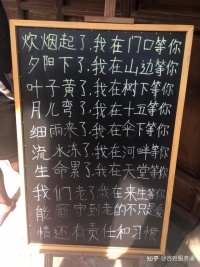 炊烟起了.我在门口等你
夕阳下了.我在山边等你
叶子黄了.我在树下等你
月儿弯了.我在十五等你
细雨来了.我在伞下等你
流水冻了.我在河畔等你
生命累了.我在天堂等你
我们老了.我在来生等你
能厮守到老的不只是爱
情还有责任和习惯
知乎 @